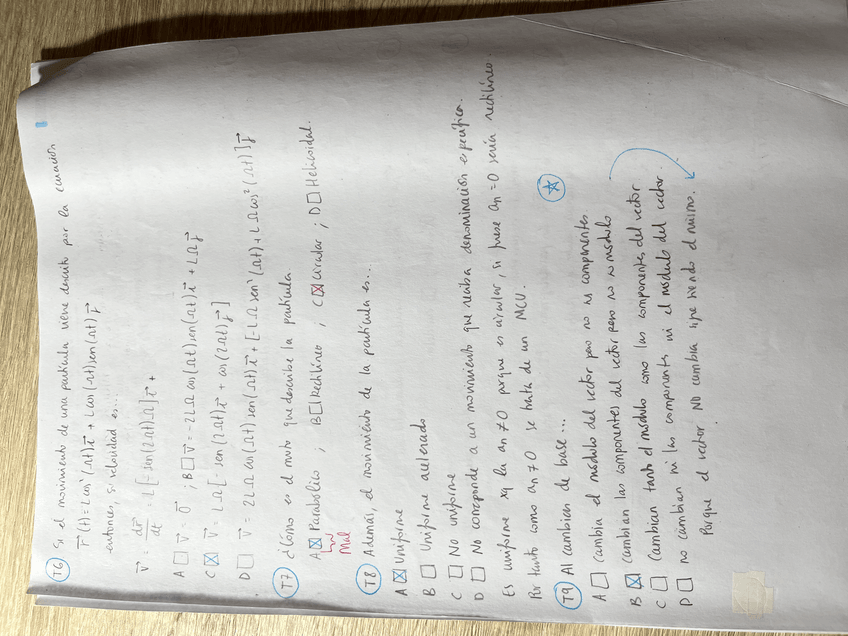 T6 Si el movimiento de una partícula viene descrito por la ecuación
r⃗(t) = L cos²(Ωt) i⃗ + L cos(Ωt) sen(Ωt) j⃗
entonces, su velocidad es...
v⃗ = dr⃗/dt = L[-sen(2Ωt)Ω] i⃗ +
A □ v⃗ = 0⃗ ; B □ v⃗ = -2LΩ cos(Ωt) sen(Ωt) i⃗ + LΩ j⃗
C ☒ v⃗ = LΩ[-sen(2Ωt) i⃗ + cos(2Ωt) j⃗]
D □ v⃗ = 2LΩ cos(Ωt) sen(Ωt) i⃗ + [-LΩ sen²(Ωt) + LΩ cos²(Ωt)] j⃗
T7 ¿Cómo es el mvto que describe la partícula
A ☒ Parabólico ; B □ Rectilíneo ; C ☒ Circular ; D □ Helicoidal.
Mal
T8 Además, el movimiento de la partícula es...
A ☒ Uniforme
B □ Uniforme acelerado
C □ No uniforme
D □ No corresponde a un movimiento que reciba denominación específica.
Es uniforme xq la an ≠ 0 porque es circular, si fuese an = 0 sería rectilíneo.
Por tanto como an ≠ 0 se trata de un MCU.
T9 Al cambiar de base... ☆
A □ Cambia el módulo del vector pero no sus componentes
B ☒ Cambian las componentes del vector pero no su módulo
C □ Cambian tanto el módulo como las componentes del vector
D □ No cambian ni las componentes ni el módulo del vector.
Porque el vector NO cambia sigue siendo el mismo.